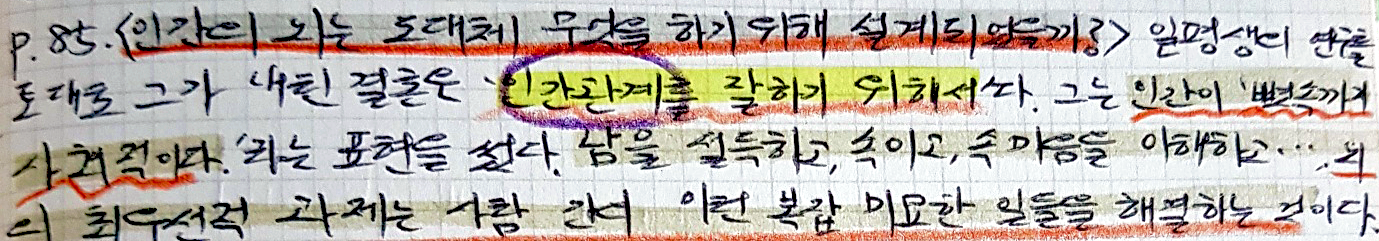 p.85. <인간의 뇌는 도대체 무엇을 하기 위해 설계되었을까?> 일평생의 연구를
토대로 그가 내린 결론은 '인간관계를 잘하기 위해서'다. 그는 인간이 '뼛속까지
사회적이다.'라는 표현을 썼다. 남을 설득하고, 속이고, 속마음을 이해하고…, 뇌
의 최우선적 과제는 사람 간의 이런 복잡 미묘한 일들을 해결하는 것이다.